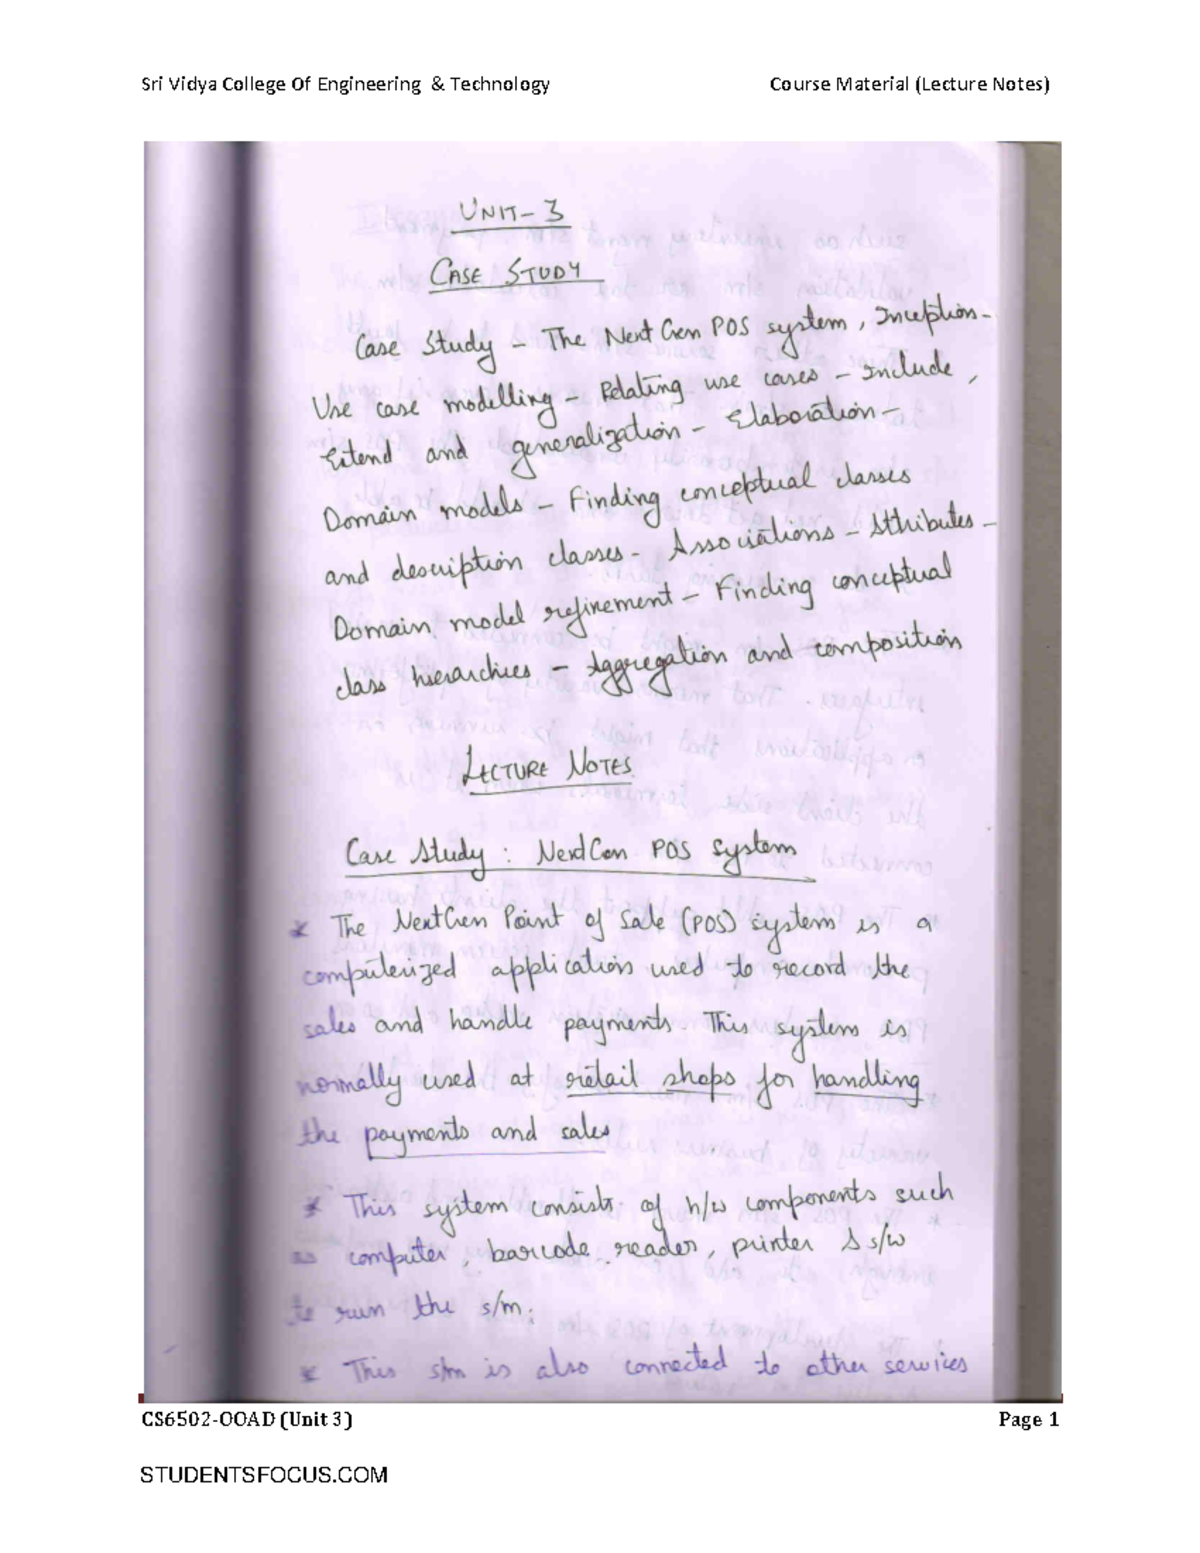 Sri Vidya College Of Engineering & Technology Course Material (Lecture Notes)
UNIT-3
CASE STUDY
Case Study - The NextGen POS system, Inception-
Use case modelling - Relating use cases - Include,
Extend and generalization - Elaboration -
Domain models - Finding conceptual classes
and description classes - Associations - Attributes -
Domain model refinement - Finding conceptual
class hierarchies - Aggregation and composition
LECTURE NOTES
Case Study : NextGen POS System
* The NextGen Point of Sale (POS) system is a
computerized application used to record the
sales and handle payments This system is
normally used at retail shops for handling
the payments and sales
* This system consists of h/w components such
as computer, barcode reader, printer & s/w
to run the s/m.
* This s/m is also connected to other services
CS6502-OOAD (Unit 3) Page 1
STUDENTSFOCUS.COM